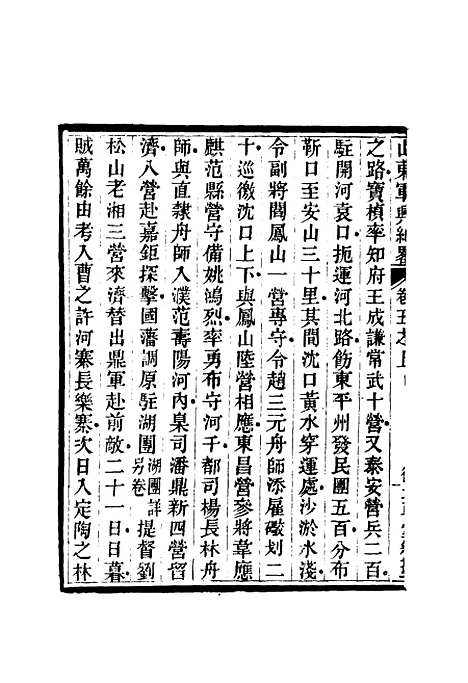 山東軍興紀畧 卷五之
之路寶楨率知府王成謙常武十營又泰安營兵二百
駐開河袁口扼運河北路飭東平州發民團五百分布
靳口至安山三十里其間沈口黃水穿運處沙淤水淺
令副將閻鳳山一營專守令趙三元舟師添雇礮划二
十巡徼沈口上下與鳳山陸營相應東昌營參將韋應
麒范縣營守備姚鴻烈率勇布守河干都司楊長林舟
師與直隸舟師入濮范壽陽河內臬司潘鼎新四營留
濟八營赴嘉鉅探擊國藩調原駐湖團湖團詳另卷提督劉
松山老湘三營來濟替出鼎軍赴前敵二十一日日暮
賊萬餘由考入曹之許河寨長樂寨次日入定陶之林